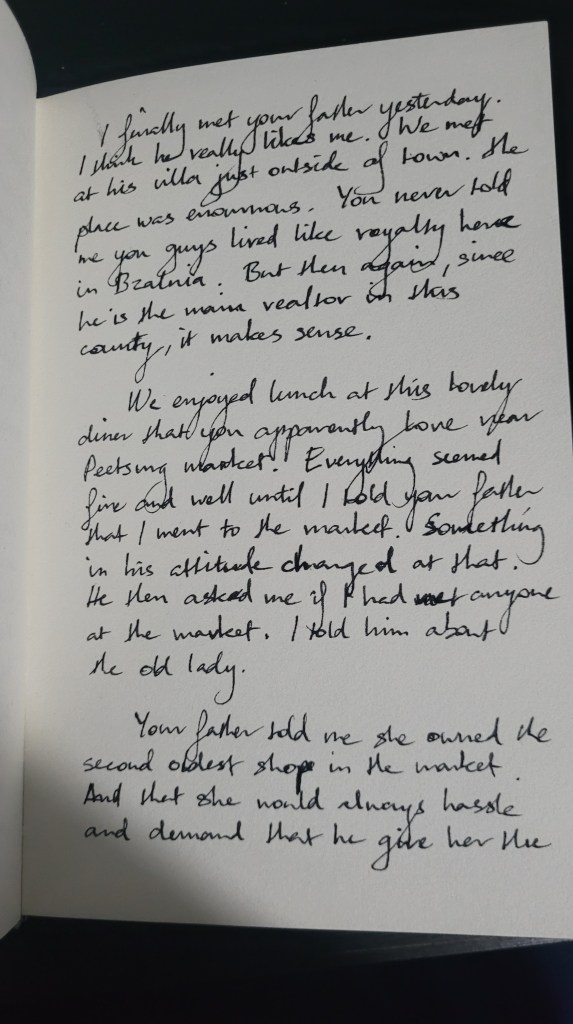 I finally met your father yesterday.
I think he really likes me. We met
at his villa just outside of town. The
place was enormous. You never told
me you guys lived like royalty here
in Bzatnia. But then again, since
he is the main realtor in this
county, it makes sense.
We enjoyed lunch at this lovely
diner that you apparently love near
Peetsung market. Everything seemed
fine and well until I told your father
that I went to the market. Something
in his attitude changed at that.
He then asked me if I had met anyone
at the market. I told him about
the old lady.
Your father told me she owned the
second oldest shop in the market.
And that she would always hassle
and demand that he give her the